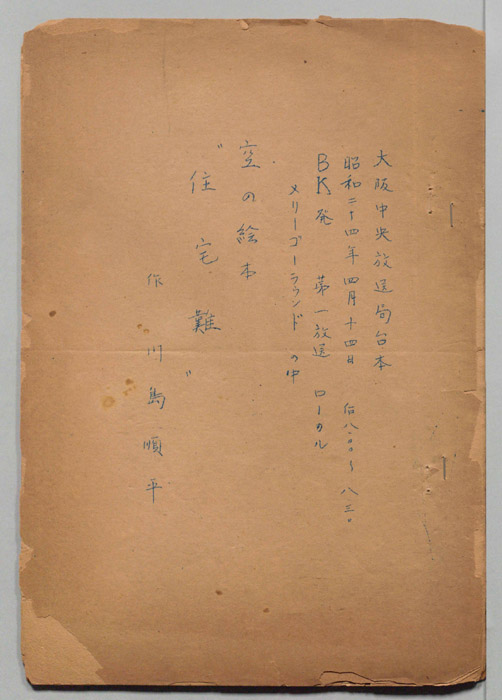 大阪中央放送局台本
昭和二十四年四月十四日 后八・〇〇〜八・三〇
BK発 第一放送 ローカル
メリーゴーラウンドの中
空の絵本
"住宅難"
作 川島順平